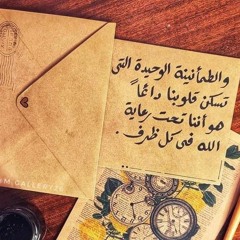 والطمأنينة الوحيدة التى
تسكن قلوبنا دائماً
هو أننا تحت رعاية
الله فى كل ظرف .